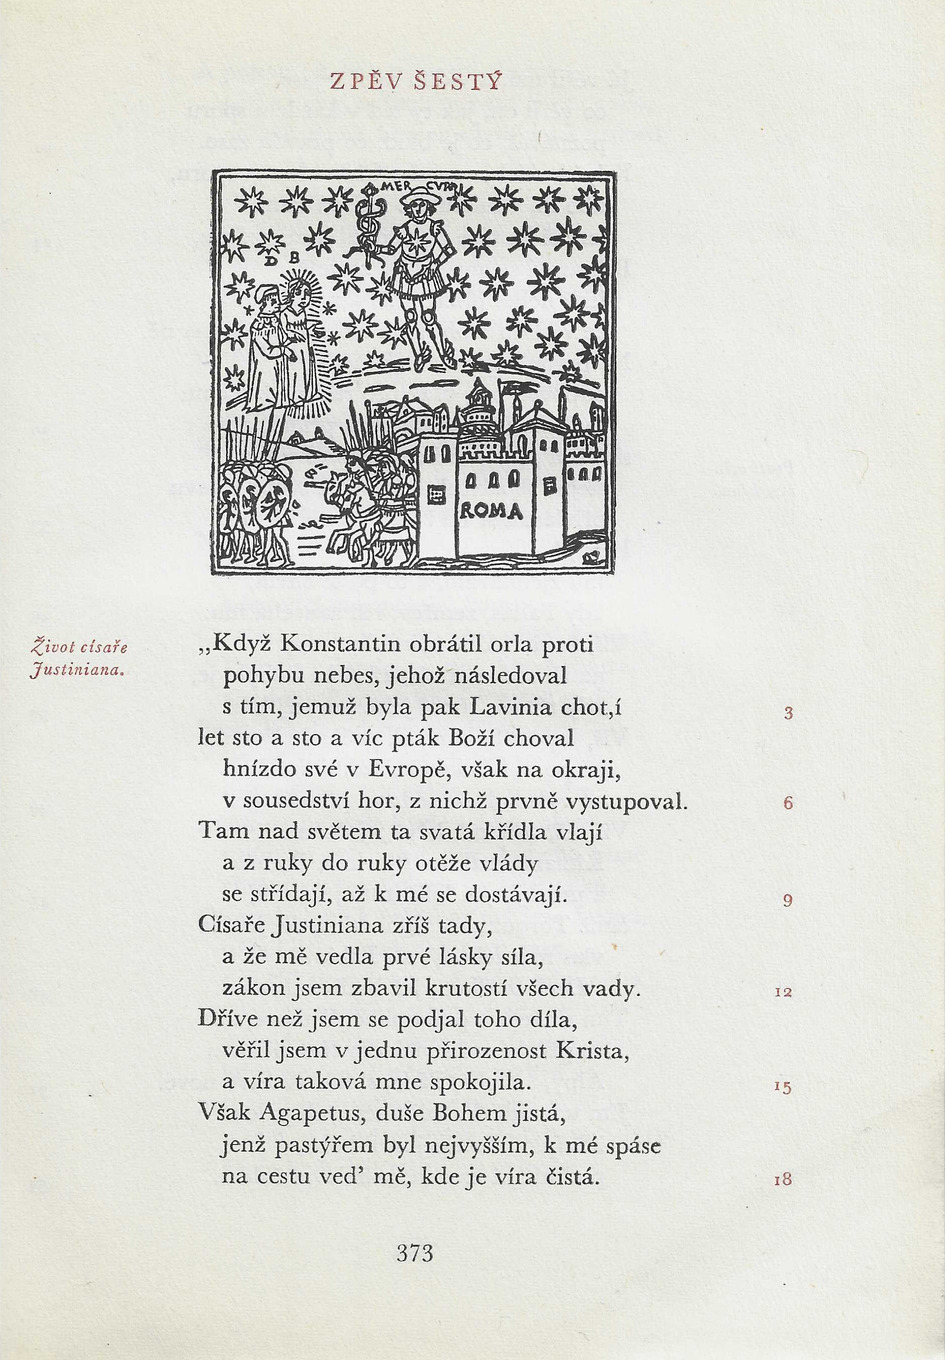 ZPĚV ŠESTÝ
MERCVRI
D B
ROMA
Život císaře
Justiniana.
„Když Konstantin obrátil orla proti
pohybu nebes, jehož následoval
s tím, jemuž byla pak Lavinia chot,í
3
let sto a sto a víc pták Boží choval
hnízdo své v Evropě, však na okraji,
v sousedství hor, z nichž prvně vystupoval.
6
Tam nad světem ta svatá křídla vlají
a z ruky do ruky otěže vlády
se střídají, až k mé se dostávají.
9
Císaře Justiniana zříš tady,
a že mě vedla prvé lásky síla,
zákon jsem zbavil krutostí všech vady.
12
Dříve než jsem se podjal toho díla,
věřil jsem v jednu přirozenost Krista,
a víra taková mne spokojila.
15
Však Agapetus, duše Bohem jistá,
jenž pastýřem byl nejvyšším, k mé spáse
na cestu ved’ mě, kde je víra čistá.
18
373